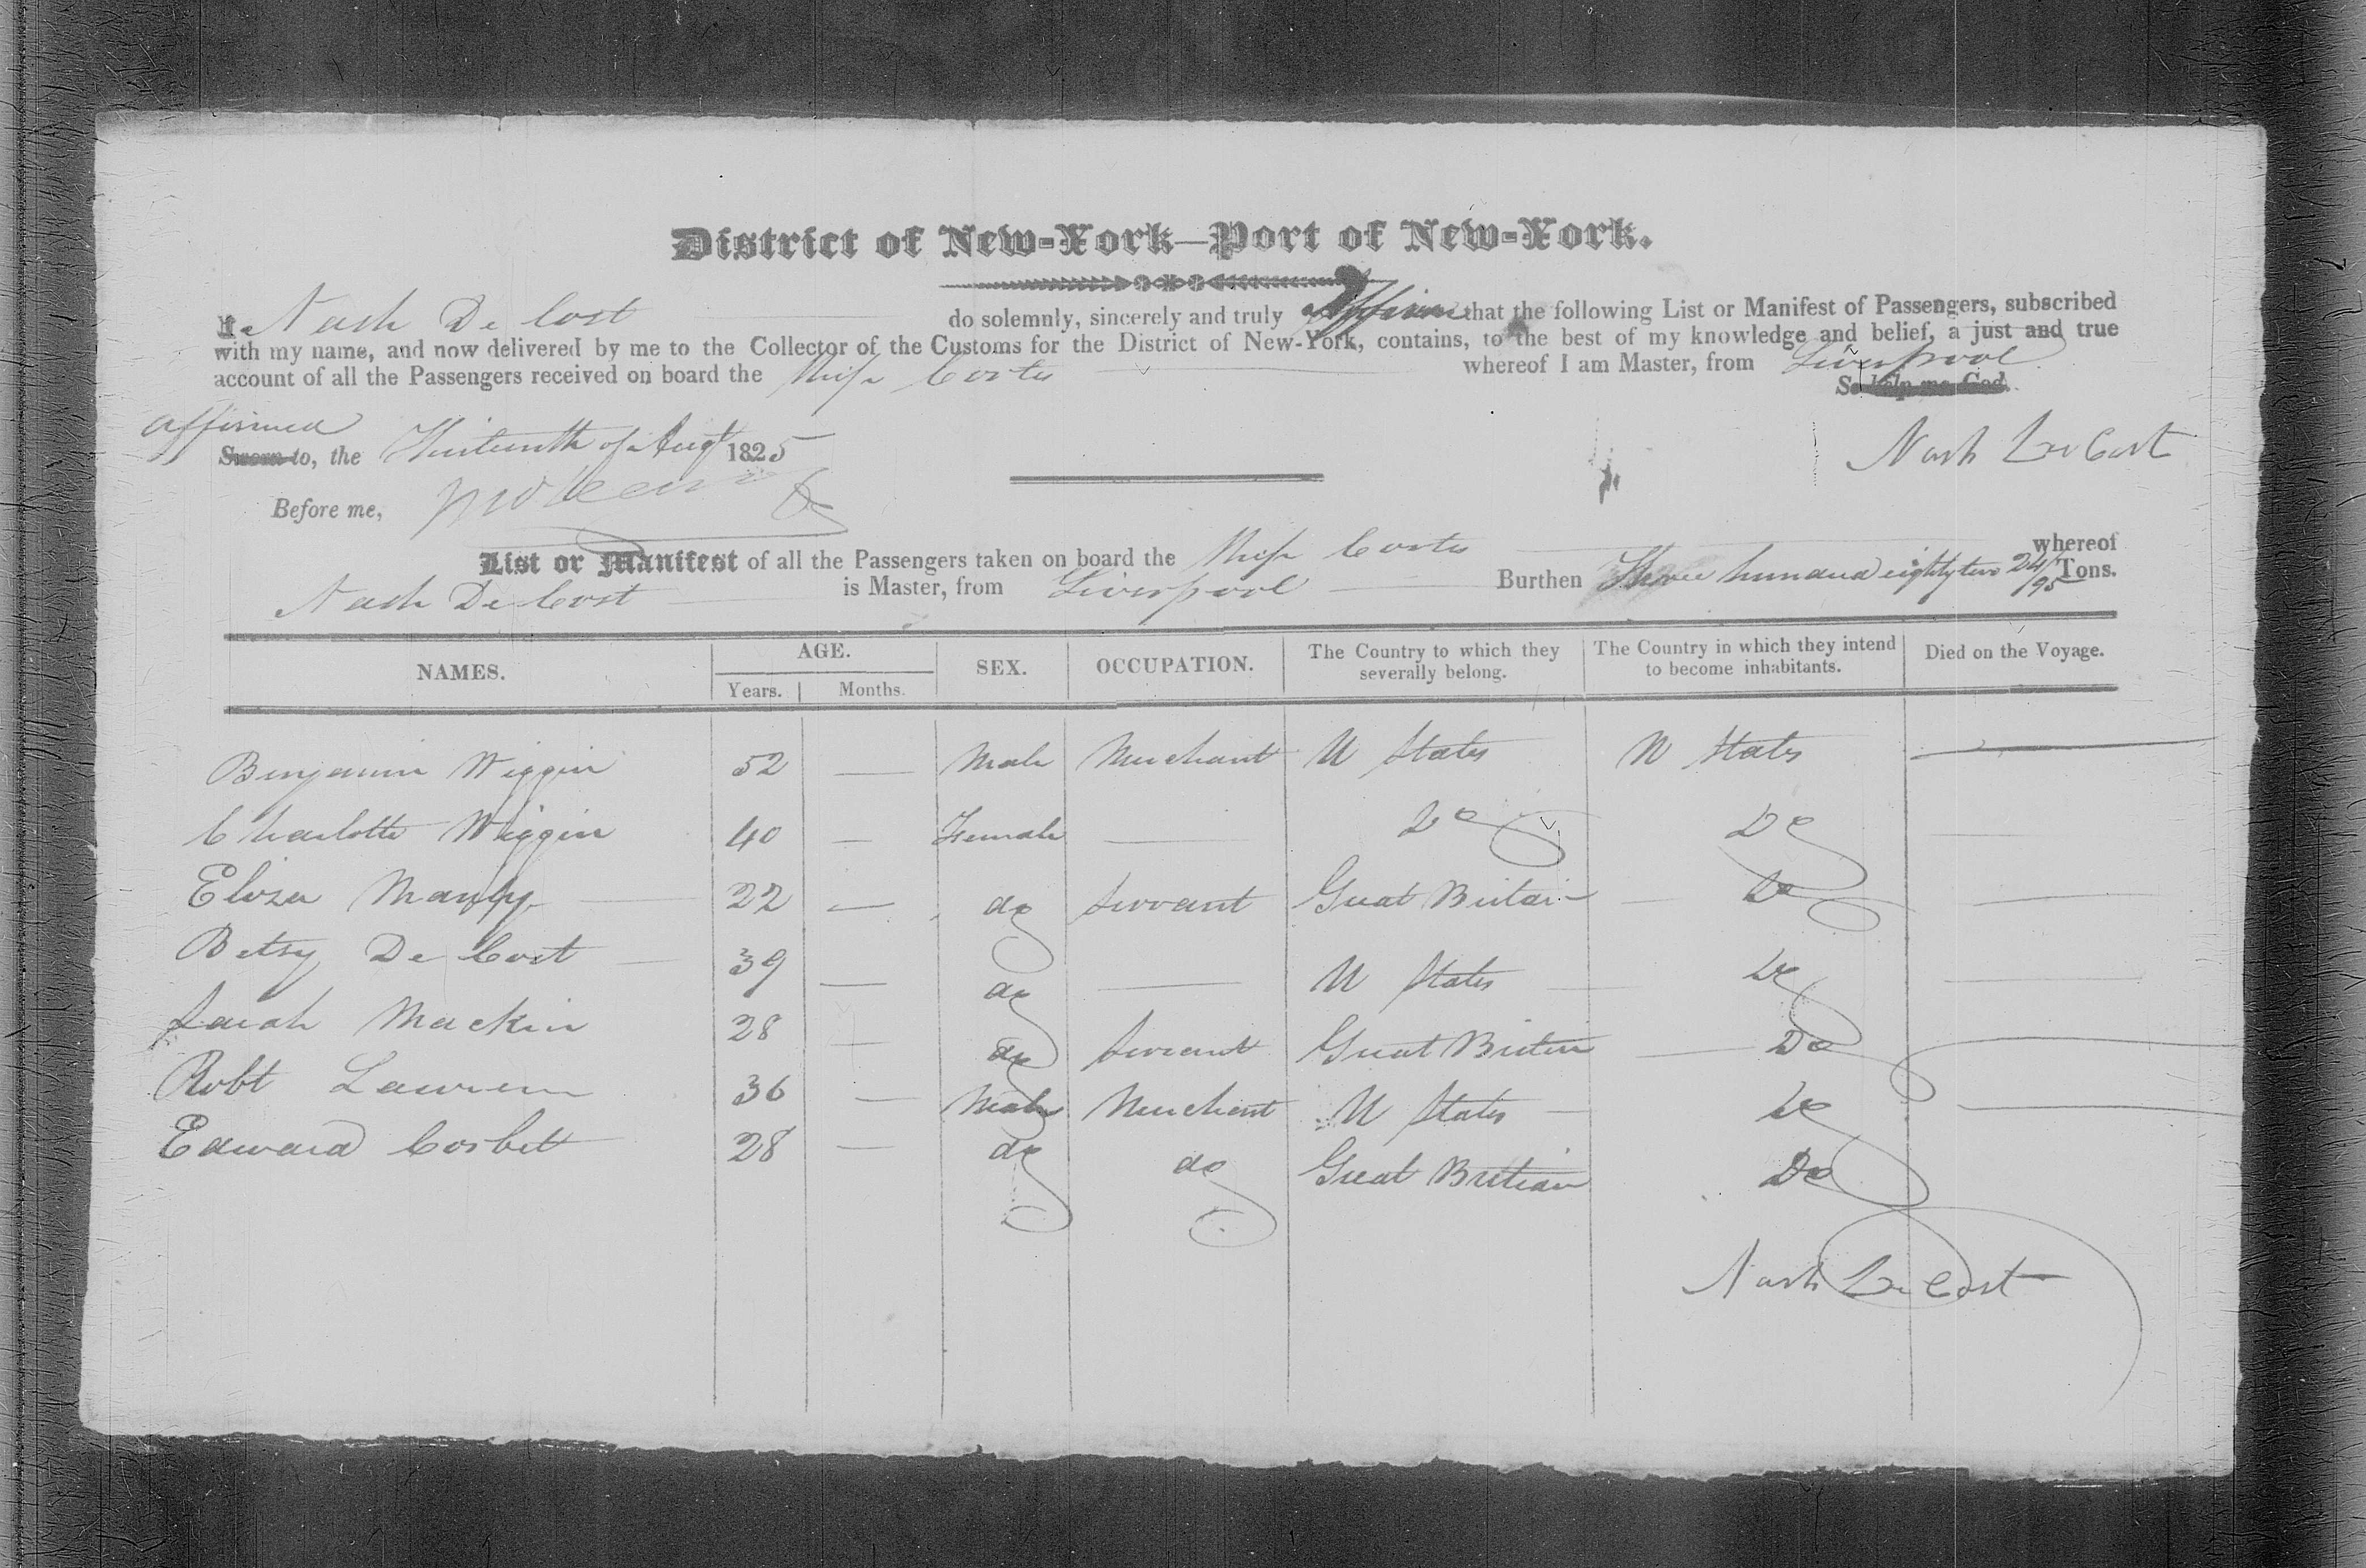 District of New-York—Port of New-York.
I, Nash De Cost do solemnly, sincerely and truly affirm that the following List or Manifest of Passengers, subscribed
with my name, and now delivered by me to the Collector of the Customs for the District of New-York, contains, to the best of my knowledge and belief, a just and true
account of all the Passengers received on board the Ship Cortes whereof I am Master, from Liverpool
So help me God.
affirmed
Sworn to, the Thirteenth of Augt 1825
Nash De Cost
Before me,
List or Manifest of all the Passengers taken on board the Ship Cortes whereof
Nash De Cost is Master, from Liverpool Burthen Three hundred eighty two 24/95 Tons.
NAMES. AGE. SEX. OCCUPATION. The Country to which they severally belong. The Country in which they intend to become inhabitants. Died on the Voyage.
Years. Months.
Benjamin Wiggin 52 — Male Merchant U States U States —
Charlotte Wiggin 40 — Female — Do Do —
Eliza 22 — do Servant Great Britain — Do —
Betsy De Cost — 39 — do — U States — Do —
Sarah Mackin 28 — do Servant Great Britain — Do —
Robt 36 — Male Merchant U States — Do —
Edward Corbett 28 — do do Great Britian Do
Nash De Cost